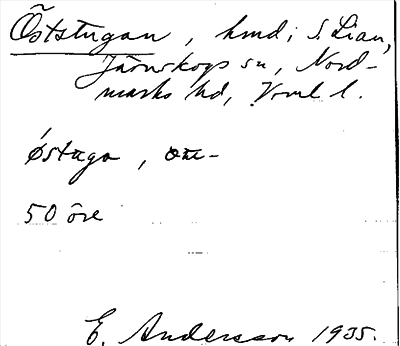 Öststugan, hmd i S. Lian,
Järnskogs sn, Nord-
marks hd, Vrml l.
östugo, om-
50 öre
E. Andersson 1935.